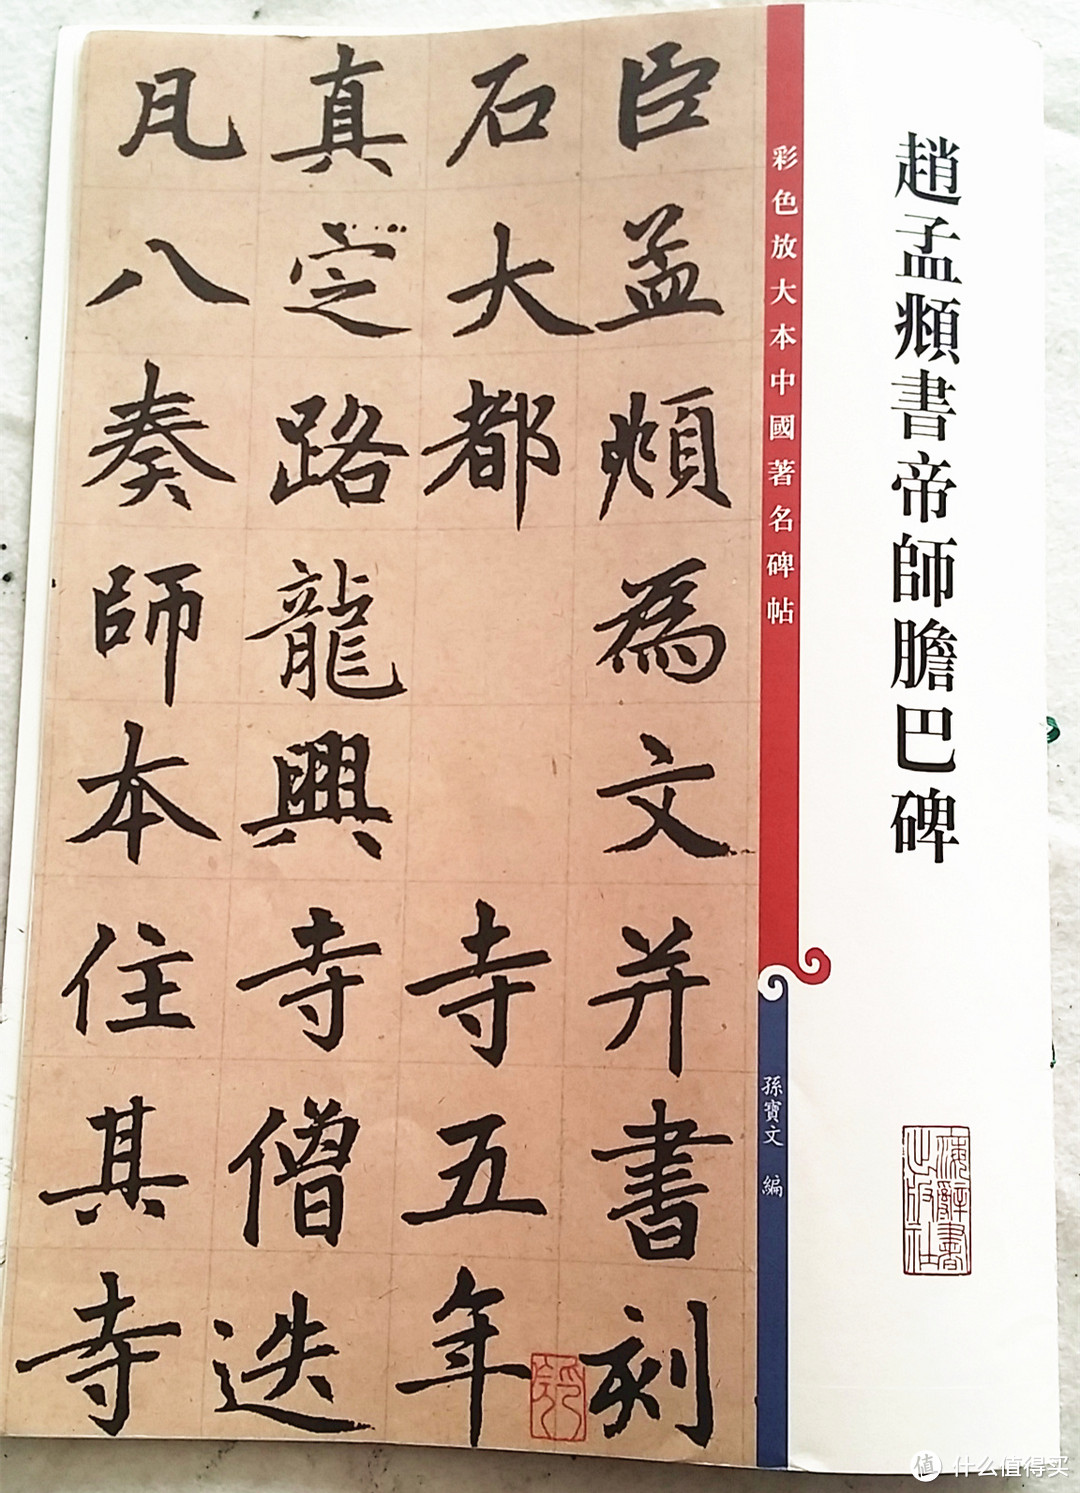 趙孟頫書帝師膽巴碑
彩色放大本中國著名碑帖
孫寶文 編
海辭書
出版社
臣孟頫為文并書刻
石大都寺五年
真定路龍興寺僧迭
凡八奏師本住其寺
值 什么值得买